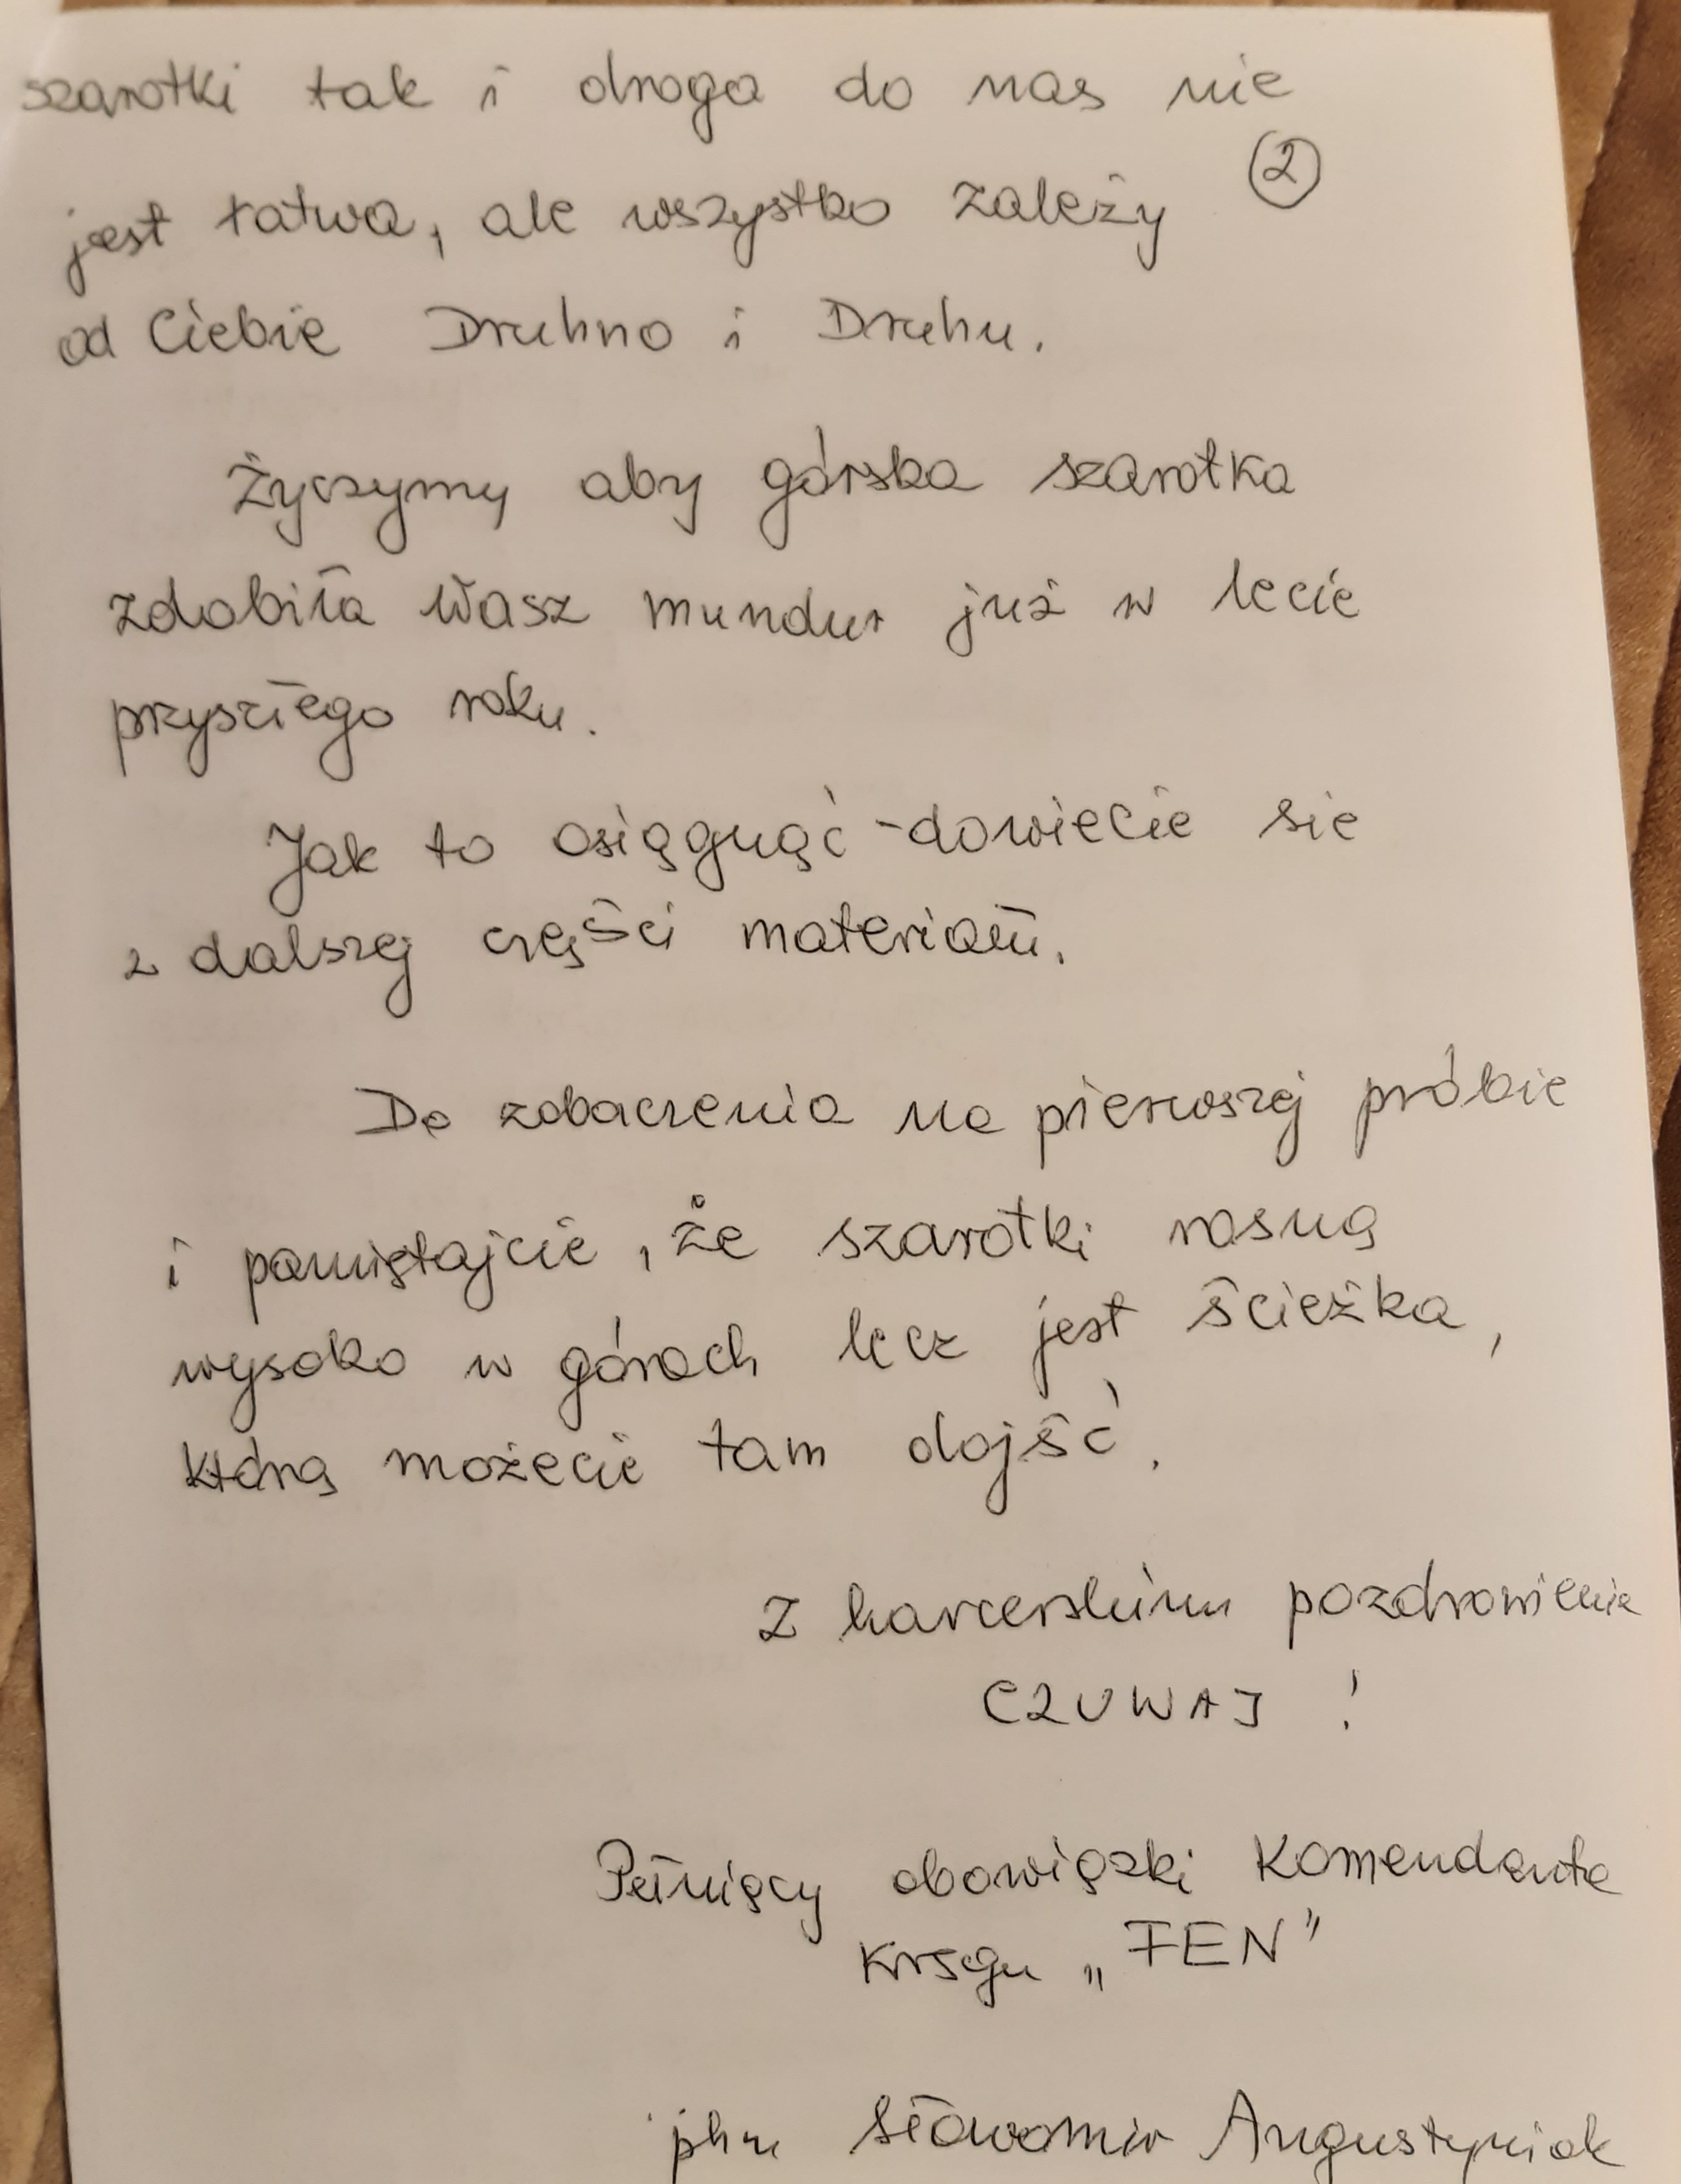 szarotki tak i droga do nas nie
②
jest łatwa, ale wszystko zależy
od Ciebie Druhno i Druhu.
Życzymy aby górska szarotka
zdobiła Wasz mundur już w lecie
przyszłego roku.
Jak to osiągnąć - dowiecie się
z dalszej części materiału.
Do zobaczenia na pierwszej próbie
i pamiętajcie, że szarotki rosną
wysoko w górach lecz jest ścieżka,
którą możecie tam dojść.
Z harcerskim pozdrowienie
CZUWAJ !
Pełniący obowiązki Komendanta
Kręgu „FEN”
phm Sławomir Augustyniak